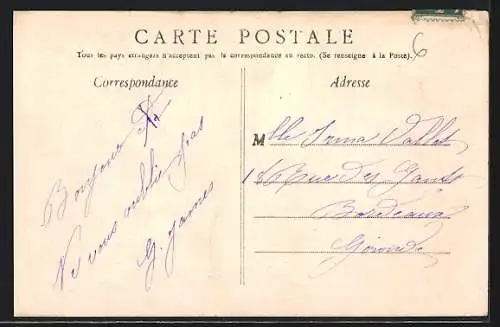 CARTE POSTALE
Tous les pays étrangers n'acceptent pas la correspondance au recto. (Se renseigner à la Poste).
6
Correspondance
Bonjour
Ne vous oublie pas
G. James
Adresse
Mlle Irma Vallet
18 Rue des Gants
Bordeaux
Gironde